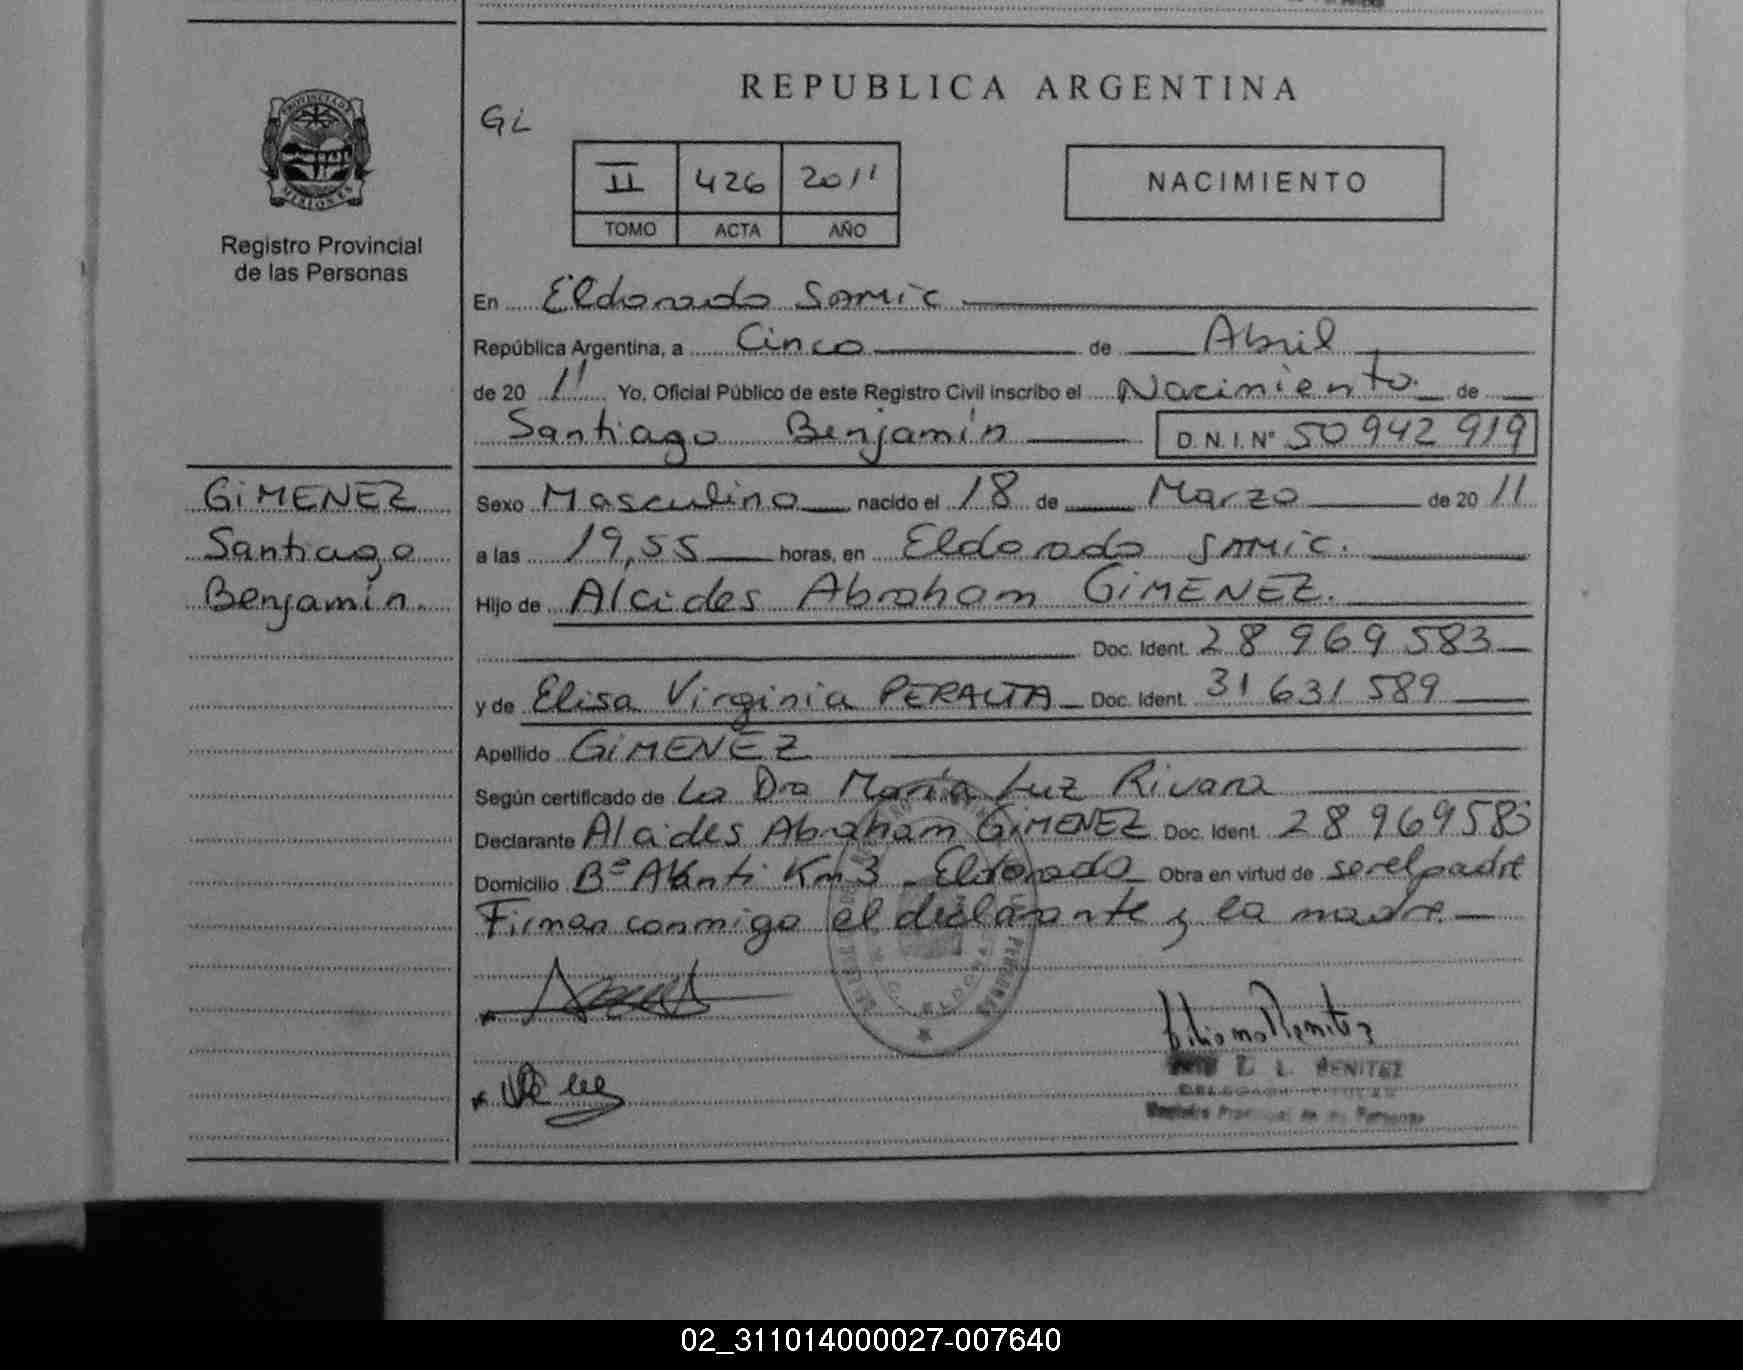 REPUBLICA ARGENTINA
GL
II 426 2011
TOMO ACTA AÑO
NACIMIENTO
PROVINCIA DE MISIONES
Registro Provincial
de las Personas
GIMENEZ
Santiago
Benjamín.
En Eldorado SAMIC
República Argentina, a Cinco de Abril
de 20 11 Yo, Oficial Público de este Registro Civil inscribo el Nacimiento de
Santiago Benjamín D.N.I. Nº 50 942 919
Sexo Masculino nacido el 18 de Marzo de 20 11
a las 19,55 horas, en Eldorado SAMIC.
Hijo de Alcides Abraham GIMENEZ.
Doc. Ident. 28 969 583
y de Elisa Virginia PERALTA Doc. Ident. 31 631 589
Apellido GIMENEZ
Según certificado de La Dra María Luz Rivara
Declarante Alcides Abraham GIMENEZ Doc. Ident. 28 969 583
Domicilio Bº Avanti Km 3 Eldorado Obra en virtud de ser el padre
Firman conmigo el declarante y la madre
L. BENITEZ
Registro Provincial de las Personas
02_311014000027-007640